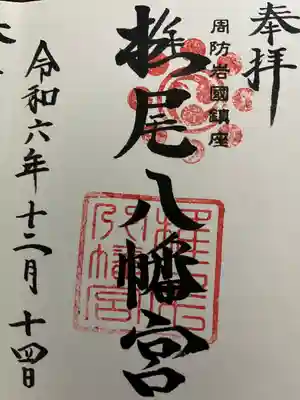 奉拝
周防岩國鎮座
椎尾八幡宮
令和六年十二月十四日